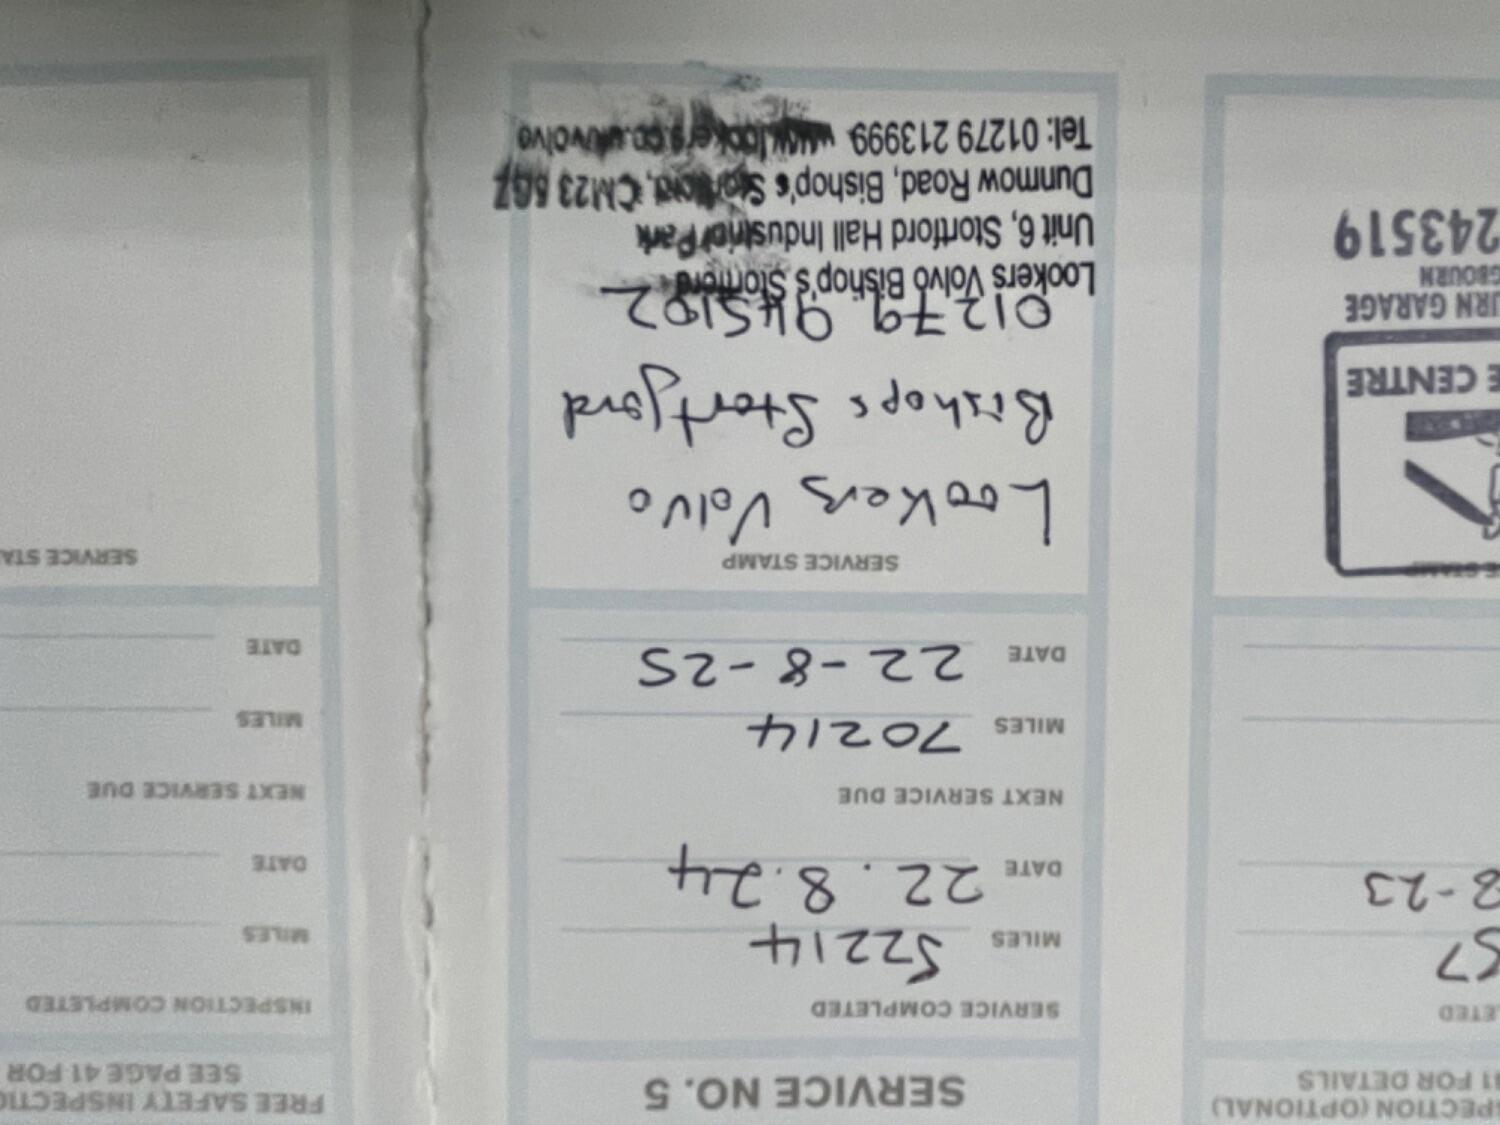 PECTION (OPTIONAL)
1 FOR DETAILS
ETED
57
8-23
E STAMP
E CENTRE
URN GARAGE
GBOURN
243519
SERVICE NO. 5
SERVICE COMPLETED
MILES 52214
DATE 22.8.24
NEXT SERVICE DUE
MILES 70214
DATE 22-8-25
SERVICE STAMP
Lookers Volvo
Bishops Stortford
01279 945102
Lookers Volvo Bishop's Stortford
Unit 6, Stortford Hall Industrial Park
Dunmow Road, Bishop's Stortford, CM23
Tel: 01279 213999 www.lookers.co.uk/volvo
FREE SAFETY INSPECTIO
SEE PAGE 41 FOR
INSPECTION COMPLETED
MILES
DATE
NEXT SERVICE DUE
MILES
DATE
SERVICE STA